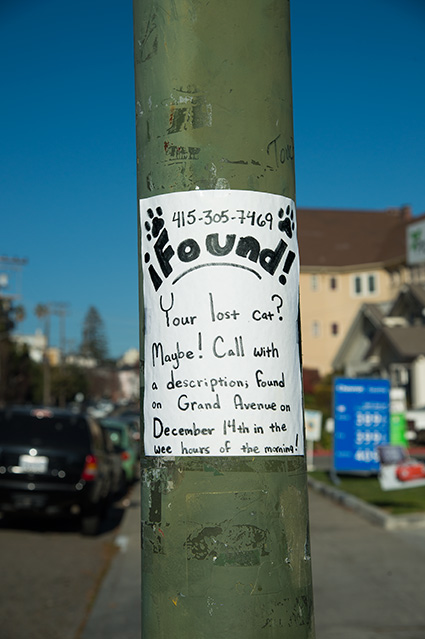 415-305-7469
¡Found!
Your lost cat?
Maybe! Call with
a description; found
on Grand Avenue on
December 14th in the
wee hours of the morning!